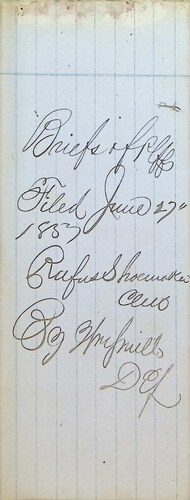 Briefs of Plffs
Filed June 27"
1857
Rufus Shoemaker
Clerk
By Wm Smith
D Clk